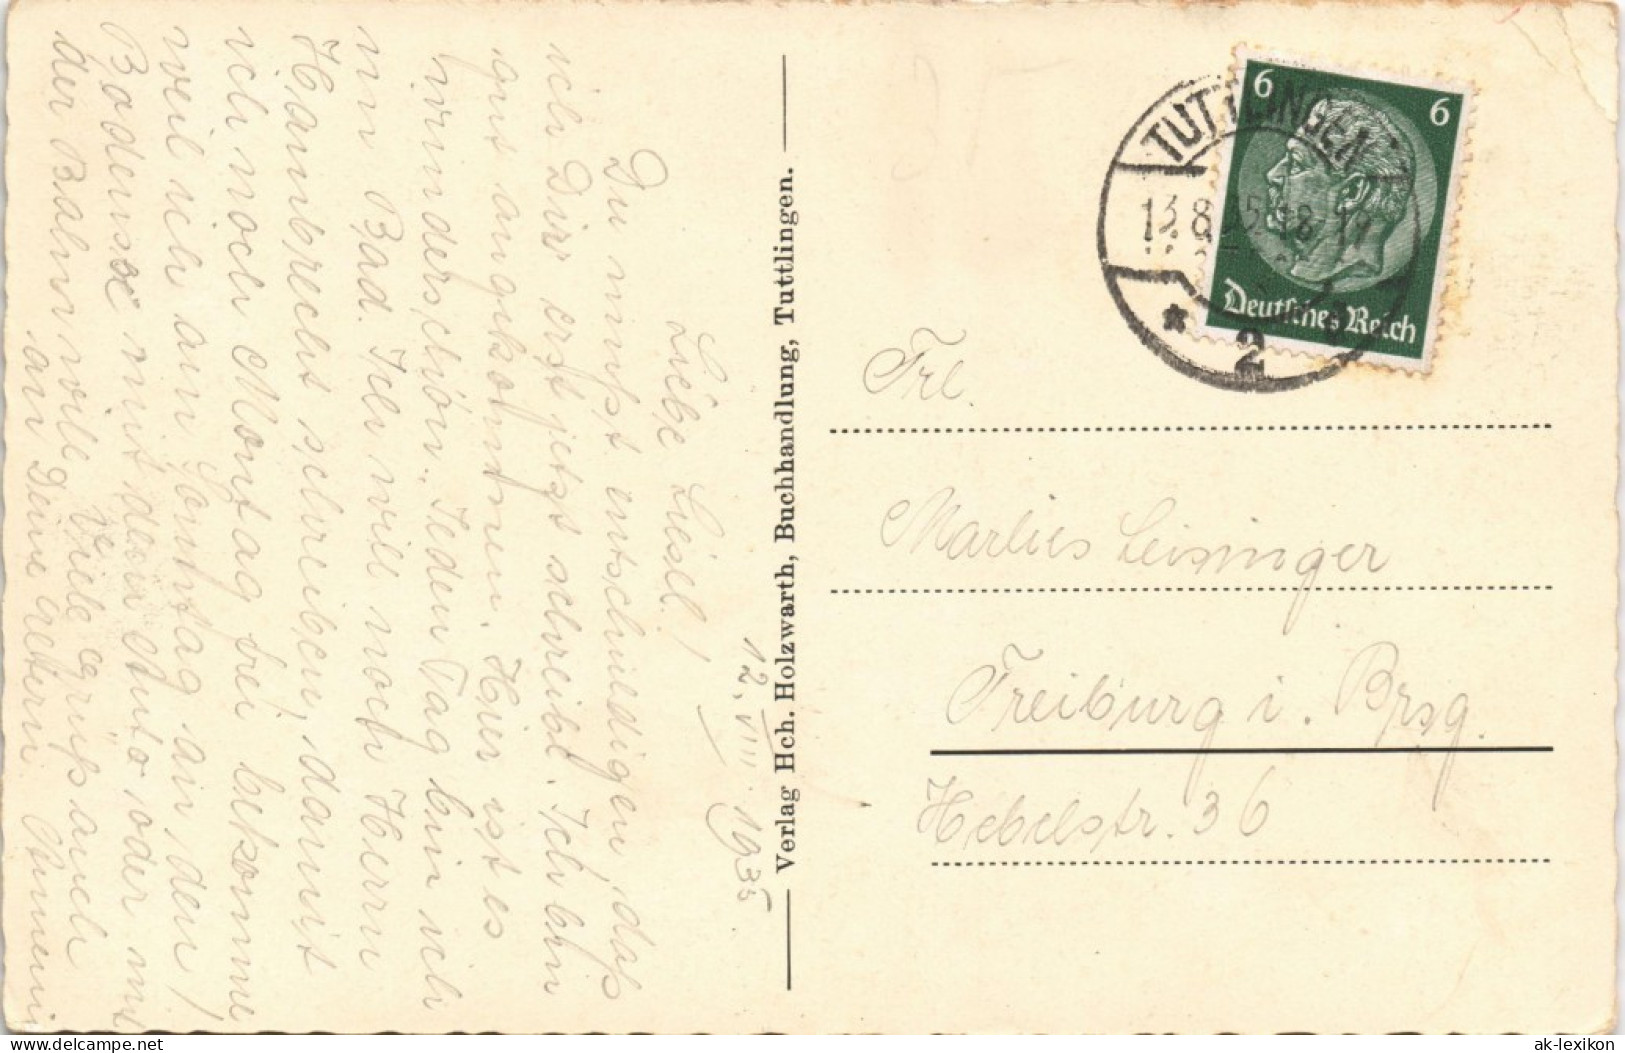 12. VIII. 1935
Liebe Liesl!
Du mußt entschuldigen, daß
ich Dir erst jetzt schreibt. Ich bin
gut angekommen. Hier ist es
wunderschön. Jeden Tag bin ich
im Bad. Ich will noch Herrn
Hambrecht schreiben, damit
ich noch Montag frei bekomme
weil ich am Sonntag an den
Bodensee mit dem Auto oder mit
der Bahn will. Viele Grüße auch
an Deine Eltern.
Verlag Hch. Holzwarth, Buchhandlung, Tuttlingen.
TUTTLINGEN
13.8.35.18-19
* 2
6 6
Deutsches Reich
Frl.
Marlies Leisinger
Freiburg i. Brsg.
Hebelstr. 36
www.delcampe.net
ak-lexikon